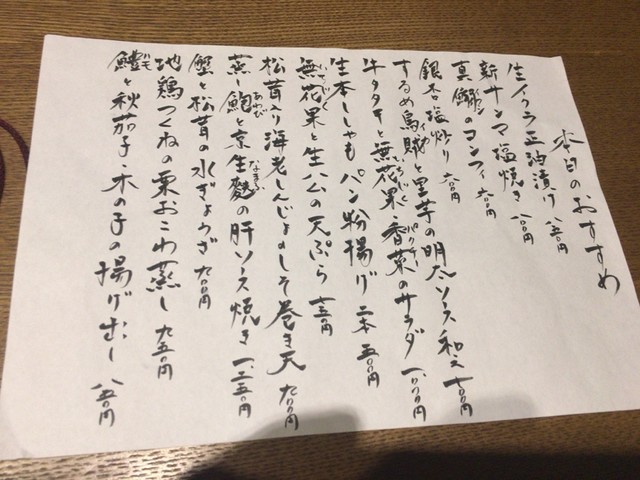 本日のおすすめ
生イクラ正油漬け 八五〇円
新サンマ塩焼き 八〇〇円
真鰯のコンフィ 六〇〇円
銀杏塩炒り 六〇〇円
するめ烏賊と里芋の明太ソース和え 七〇〇円
牛タタキと無花果・香菜のサラダ 一、〇〇〇円
生本ししゃも パン粉揚げ 二本 五〇〇円
無花果と生ハムの天ぷら 七五〇円
松茸入り海老しんじょのしそ巻き天 九〇〇円
蒸し鮑と京生麩の肝ソース焼き 一、二五〇円
蟹と松茸の水ぎょうざ 九〇〇円
地鶏つくねの栗おこわ蒸し 九五〇円
鱧と秋茄子・木の子の揚げ出し 八五〇円